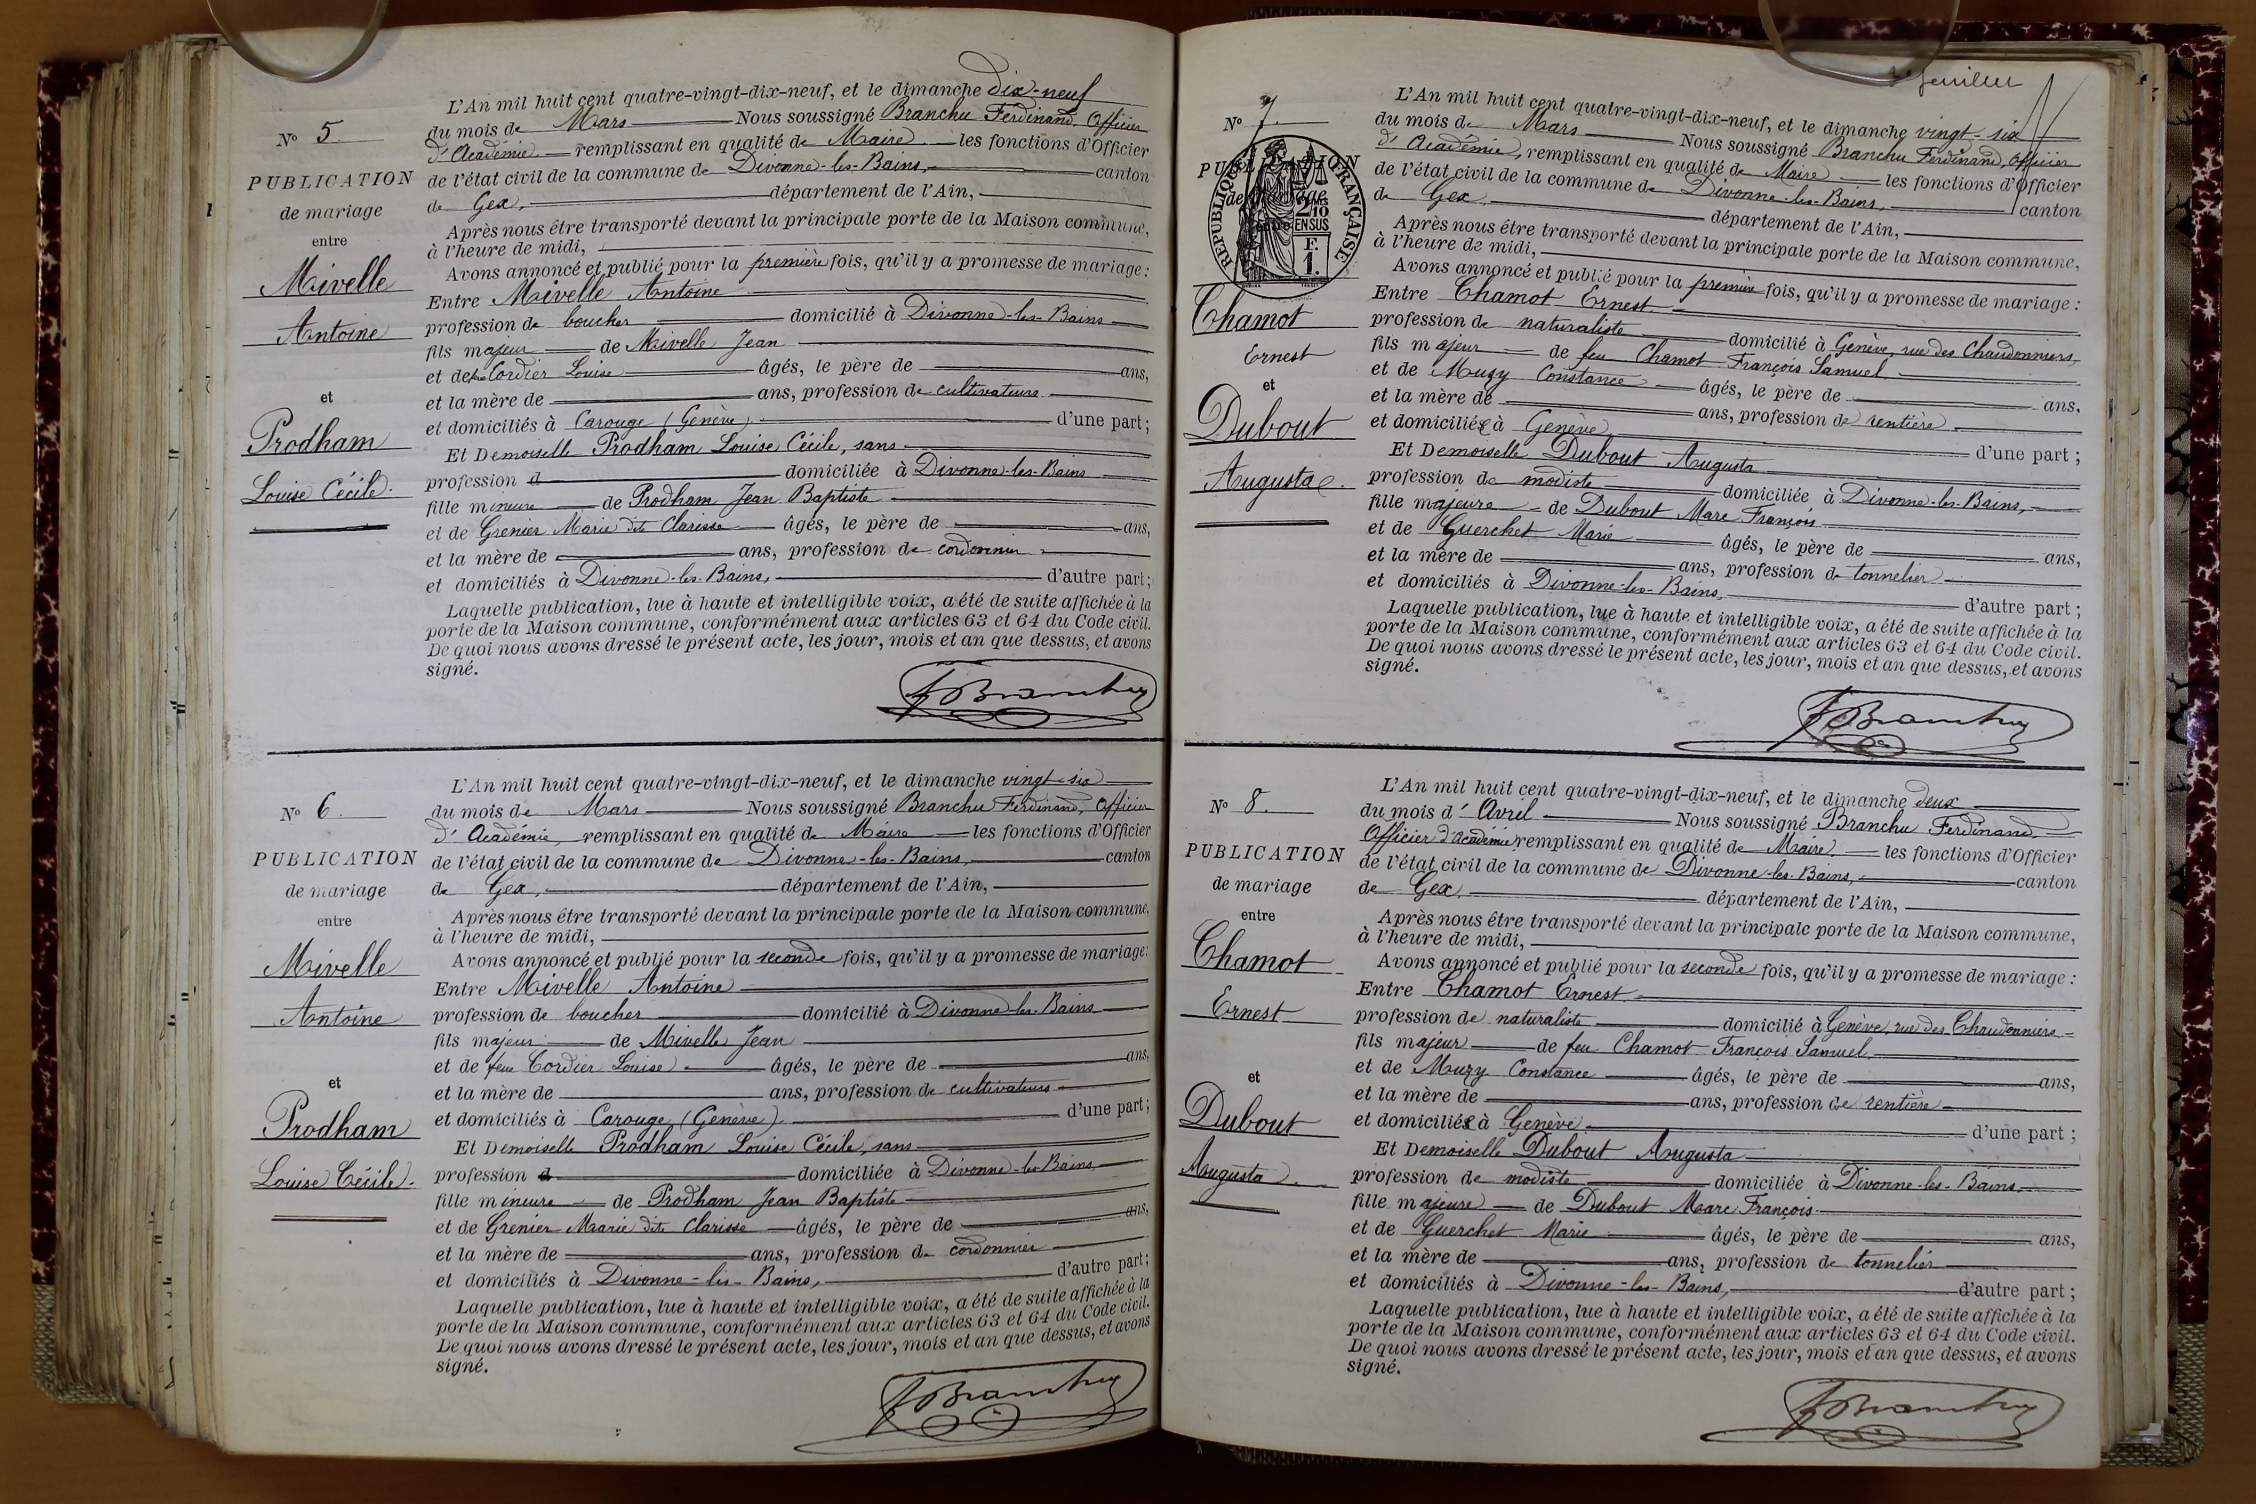 L'An mil huit cent quatre-vingt-dix-neuf, et le dimanche dix-neuf
Nº 5
du mois de Mars Nous soussigné Branchu Ferdinand, Officier
d'Académie remplissant en qualité de Maire les fonctions d'Officier
PUBLICATION
de l'état civil de la commune de Divonne-les-Bains, canton
de mariage
de Gex, département de l'Ain,
entre
Après nous être transporté devant la principale porte de la Maison commune,
à l'heure de midi,
Mivelle
Avons annoncé et publié pour la première fois, qu'il y a promesse de mariage :
Entre Mivelle Antoine
Antoine
profession de boucher domicilié à Divonne-les-Bains
fils majeur de Mivelle Jean
et de feue Cordier Louise âgés, le père de ans,
et
et la mère de ans, profession de cultivateurs
et domiciliés à Carouge (Genève) d'une part ;
Prodham
Et Demoiselle Prodham Louise Cécile, sans
Louise Cécile.
profession d domiciliée à Divonne-les-Bains
fille mineure de Prodham Jean Baptiste
et de Grenier Marie dite Clarisse âgés, le père de ans,
et la mère de ans, profession de cordonnier
et domiciliés à Divonne-les-Bains, d'autre part ;
Laquelle publication, lue à haute et intelligible voix, a été de suite affichée à la
porte de la Maison commune, conformément aux articles 63 et 64 du Code civil.
De quoi nous avons dressé le présent acte, les jour, mois et an que dessus, et avons
signé.
F Branchu
L'An mil huit cent quatre-vingt-dix-neuf, et le dimanche vingt-six
Nº 6.
du mois de Mars Nous soussigné Branchu Ferdinand, Officier
d'Académie, remplissant en qualité de Maire les fonctions d'Officier
PUBLICATION
de l'état civil de la commune de Divonne-les-Bains, canton
de mariage
de Gex, département de l'Ain,
entre
Après nous être transporté devant la principale porte de la Maison commune,
à l'heure de midi,
Mivelle
Avons annoncé et publié pour la seconde fois, qu'il y a promesse de mariage :
Entre Mivelle Antoine
Antoine
profession de boucher domicilié à Divonne-les-Bains
fils majeur de Mivelle Jean
et de feue Cordier Louise âgés, le père de ans,
et
et la mère de ans, profession de cultivateurs
et domiciliés à Carouge (Genève) d'une part ;
Prodham
Et Demoiselle Prodham Louise Cécile, sans
Louise Cécile.
profession d domiciliée à Divonne-les-Bains
fille mineure de Prodham Jean Baptiste
et de Grenier Marie dite Clarisse âgés, le père de ans,
et la mère de ans, profession de cordonnier
et domiciliés à Divonne-les-Bains, d'autre part ;
Laquelle publication, lue à haute et intelligible voix, a été de suite affichée à la
porte de la Maison commune, conformément aux articles 63 et 64 du Code civil.
De quoi nous avons dressé le présent acte, les jour, mois et an que dessus, et avons
signé.
F Branchu
feuillet
L'An mil huit cent quatre-vingt-dix-neuf, et le dimanche vingt-six
Nº 7.
du mois de Mars Nous soussigné Branchu Ferdinand, Officier
d'Académie, remplissant en qualité de Maire les fonctions d'Officier
PUBLICATION
de l'état civil de la commune de Divonne-les-Bains, canton
de mariage
RÉPUBLIQUE FRANÇAISE
2/10 EN SUS
F. 1.
de Gex, département de l'Ain,
entre
Après nous être transporté devant la principale porte de la Maison commune,
à l'heure de midi,
Avons annoncé et publié pour la première fois, qu'il y a promesse de mariage :
Chamot
Entre Chamot Ernest
profession de naturaliste domicilié à Genève, rue des Chaudronniers,
Ernest
fils majeur de feu Chamot François Samuel
et
et de Muzy Constance âgés, le père de ans,
et la mère de ans, profession de rentière
Dubout
et domiciliée à Genève d'une part ;
Et Demoiselle Dubout Augusta
Augusta.
profession de modiste domiciliée à Divonne-les-Bains,
fille majeure de Dubout Marc François
et de Guerchet Marie âgés, le père de ans,
et la mère de ans, profession de tonnelier
et domiciliés à Divonne-les-Bains, d'autre part ;
Laquelle publication, lue à haute et intelligible voix, a été de suite affichée à la
porte de la Maison commune, conformément aux articles 63 et 64 du Code civil.
De quoi nous avons dressé le présent acte, les jour, mois et an que dessus, et avons
signé.
F Branchu
L'An mil huit cent quatre-vingt-dix-neuf, et le dimanche deux
Nº 8.
du mois d'Avril Nous soussigné Branchu Ferdinand,
Officier d'Académie remplissant en qualité de Maire les fonctions d'Officier
PUBLICATION
de l'état civil de la commune de Divonne-les-Bains, canton
de mariage
de Gex, département de l'Ain,
entre
Après nous être transporté devant la principale porte de la Maison commune,
à l'heure de midi,
Chamot
Avons annoncé et publié pour la seconde fois, qu'il y a promesse de mariage :
Entre Chamot Ernest
Ernest
profession de naturaliste domicilié à Genève, rue des Chaudronniers
fils majeur de feu Chamot François Samuel
et de Muzy Constance âgés, le père de ans,
et
et la mère de ans, profession de rentière
Dubout
et domiciliée à Genève d'une part ;
Et Demoiselle Dubout Augusta
Augusta.
profession de modiste domiciliée à Divonne-les-Bains,
fille majeure de Dubout Marc François
et de Guerchet Marie âgés, le père de ans,
et la mère de ans, profession de tonnelier
et domiciliés à Divonne-les-Bains, d'autre part ;
Laquelle publication, lue à haute et intelligible voix, a été de suite affichée à la
porte de la Maison commune, conformément aux articles 63 et 64 du Code civil.
De quoi nous avons dressé le présent acte, les jour, mois et an que dessus, et avons
signé.
F Branchu